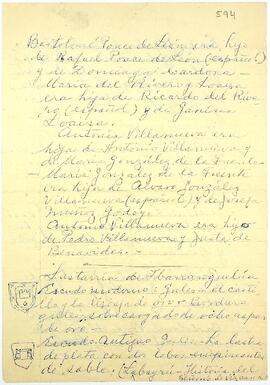 594
Bartolomé Ponce de León era hijo
de Rafael Ponce de León (español)
y de Domicaga Cardona.-
María del Rivero y Loaisa
era hija de Ricardo del Rive
ro (español) y de Janina
Loaisa.
Antonia Villanueva era
hija de Antonio Villanueva y
de María González de la Fuente.-
María González de la Fuente
era hija de Alvaro González
Villanueva (español) y de Josefa
Muñoz Godoy.
Antonio Villanueva era hijo
de Pedro Villanueva y Justa de
Benavides.-
Lastarria de Ibarranguelúa
Escudo moderno: Gules en el casti
llo y la de oro. Bordura
gules, sobrecargado de ocho aspas
de oro.
Escudo Antiguo: la
de plata con dos lobos
de sable. (Labayru - Historia del